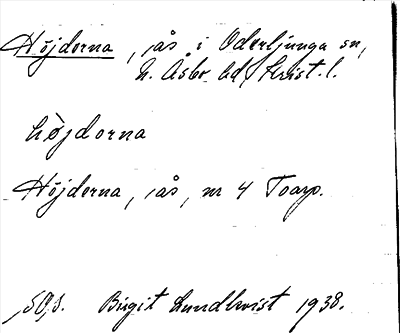 Höjderna, ås i Oderljunga sn,
N. Åsbo hd, Krist. l.
höjdorna
Höjderna, ås, nr 4 Toarp.
Birgit Lundkvist 1938.